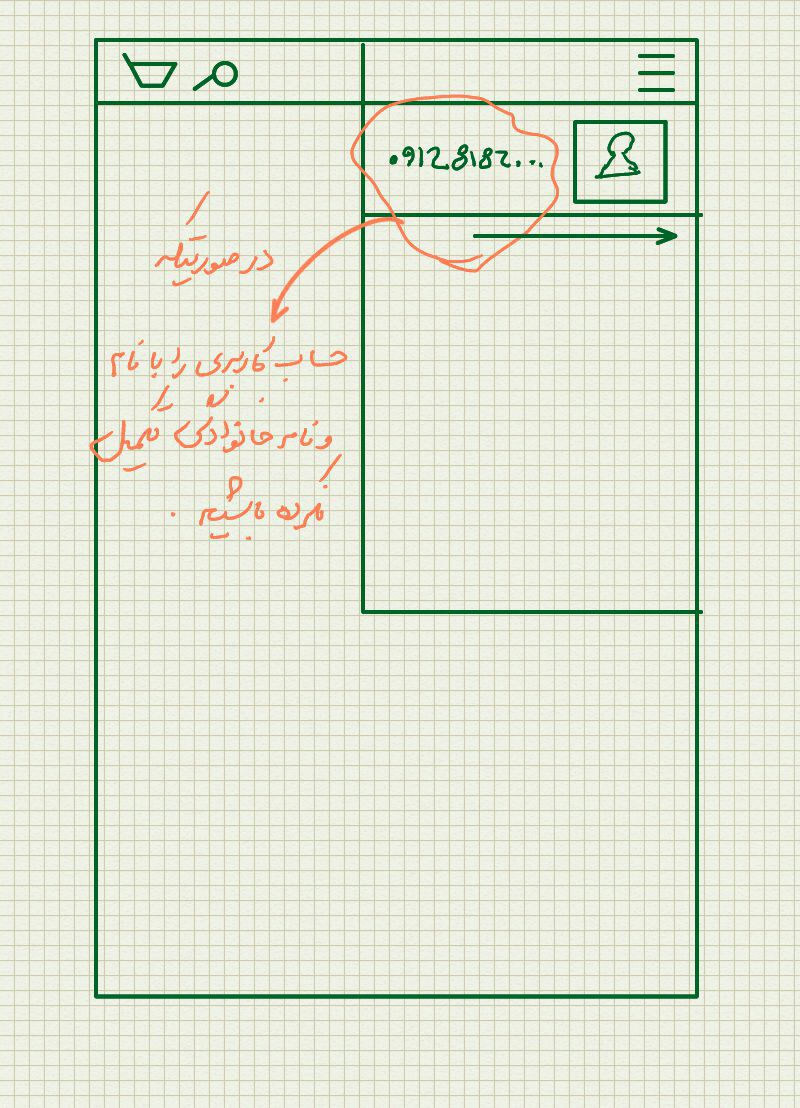 0912 8182...
در صورتیکه
حساب کاربری را با نام
و نام خانوادگی تکمیل
نکرده باشیم.